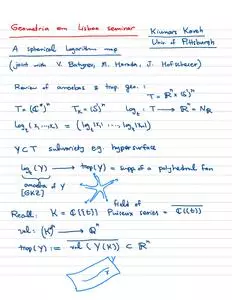 Geometria em Lisboa seminar
Kiumars Kaveh
Univ. of Pittsburgh
A spherical logarithm map
(joint with V. Batyrev, M. Harada, J. Hofscheier)
Review of amoebas & trop. geo. :
T = ℝⁿ × (S¹)ⁿ
T = (ℂ*)ⁿ T_K = (S¹)ⁿ Log_t : T → ℝⁿ = N_ℝ
Log_t(z₁,...,zₙ) = (log_t|z₁|, ..., log_t|zₙ|)
Y ⊂ T subvariety e.g. hypersurface
Log_t(Y) → trop(Y) = supp. of a polyhedral fan
amoeba of Y
[GKZ]
field of
Recall: K = ℂ{{t}} Puiseux series = ℂ((t))
val: (K*)ⁿ → ℚⁿ
trop(Y) := val(Y(K)) ⊂ ℝⁿ
Y